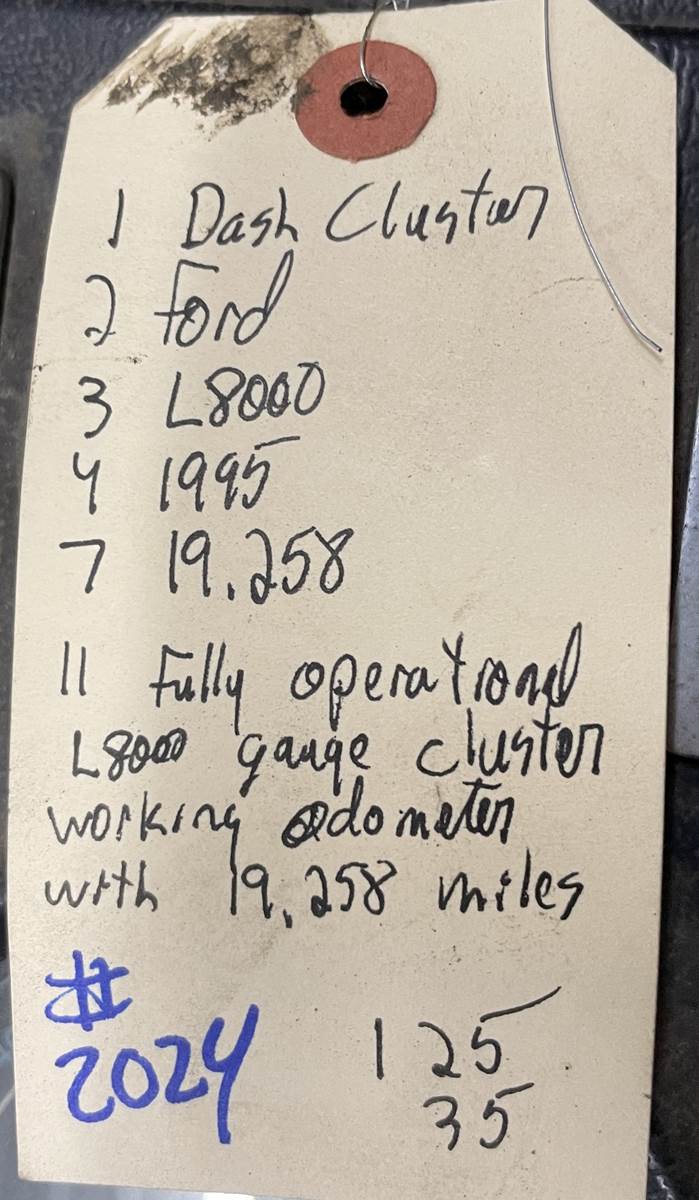 1 Dash Cluster
2 Ford
3 L8000
4 1995
7 19,258
11 Fully operational
L8000 gauge cluster
working odometer
with 19,258 miles
#
2024
1 25
35